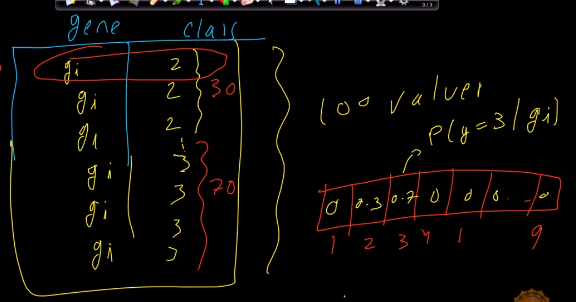 gene class
gi 2
gi 2
30
g1 2
gi 3
gi 3
70
gi 3
gi 3
100 values
P(y=3|gi)
0 0.3 0.7 0 0 0.. - 0
1 2 3 4 1 9
3/3